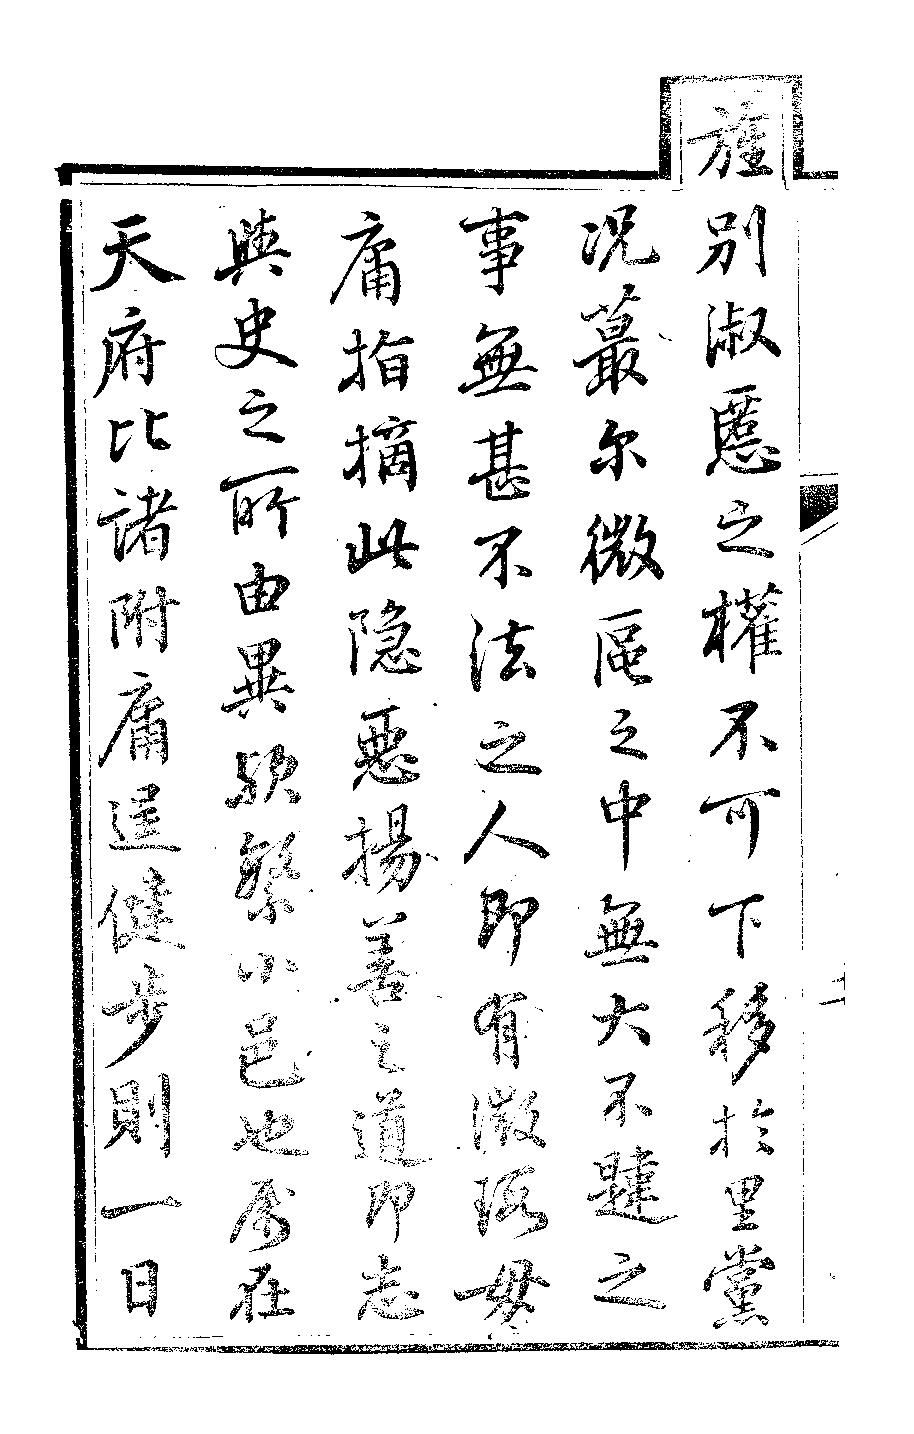 旌別淑慝之權不可下移於里黨
况蕞尔微區之中無大不韙之
事無甚不法之人即有微瑕毋
庸指摘此隐惡揚善之道即志
與史之所由異歟繁小邑也属在
天府比諸附庸逞健步則一日